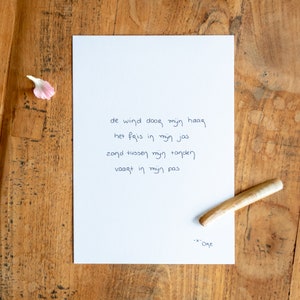 de wind door mijn haar
het fris in mijn jas
zand tussen mijn tanden
vaart in mijn pas